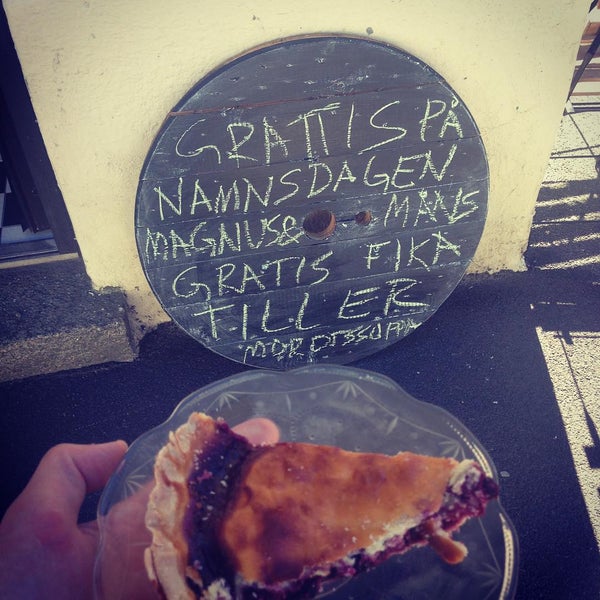 GRATTIS PÅ
NAMNSDAGEN
MAGNUS& MÅNS
GRATIS FIKA
TILL ER
MOROTSSOPPA